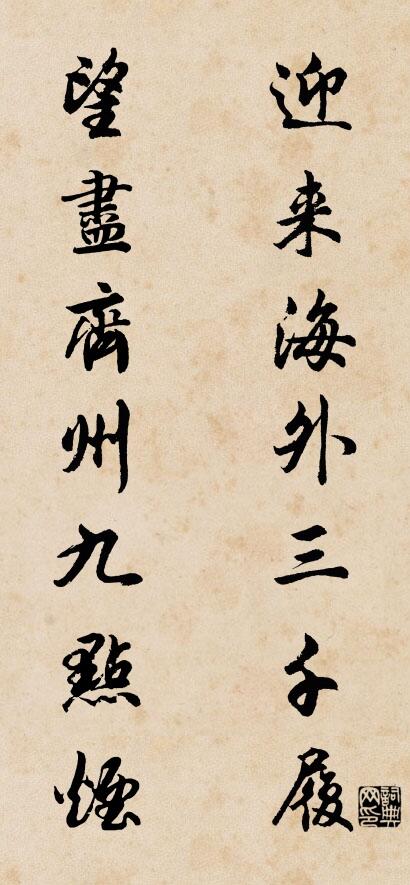 迎来海外三千履
望盡齊州九點煙
詞典网印